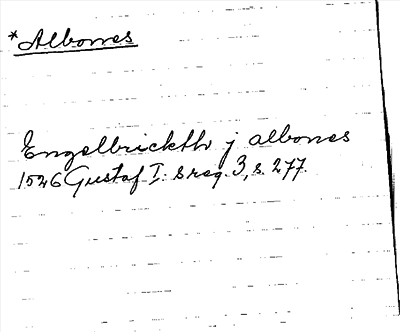 *Albones
Engelbrickth j albones
1526 Gustaf I:s reg. 3, s. 277.